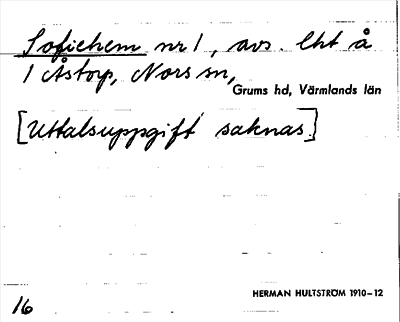 Sofiehem nr 1, avs. lht å
1 Åstorp, Nors sn,
Grums hd, Värmlands län
[Uttalsuppgift saknas.]
HERMAN HULTSTRÖM 1910–12
16